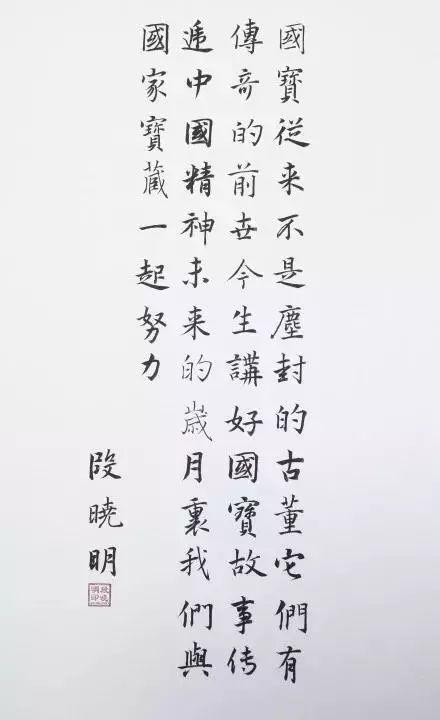 國寶従来不是塵封的古董它們有
傳奇的前世今生講好國寶故事传
递中國精神未来的歲月裏我們與
國家寶藏一起努力
段曉明
段曉明印